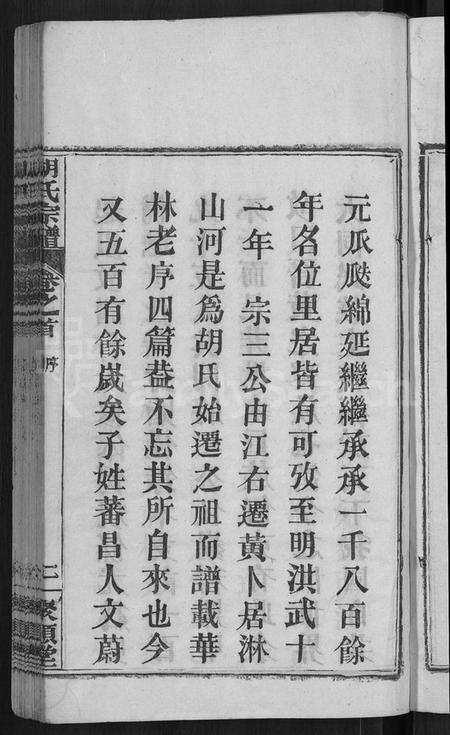 元瓜瓞綿延繼繼承承一千八百餘
年名位里居皆有可攷至明洪武十
一年 宗三公由江右遷黃卜居淋
山河是爲胡氏始遷之祖而譜載華
林老序四篇葢不忘其所自來也今
又五百有餘嵗矣子姓蕃昌人文蔚
胡氏宗譜 卷之首 序